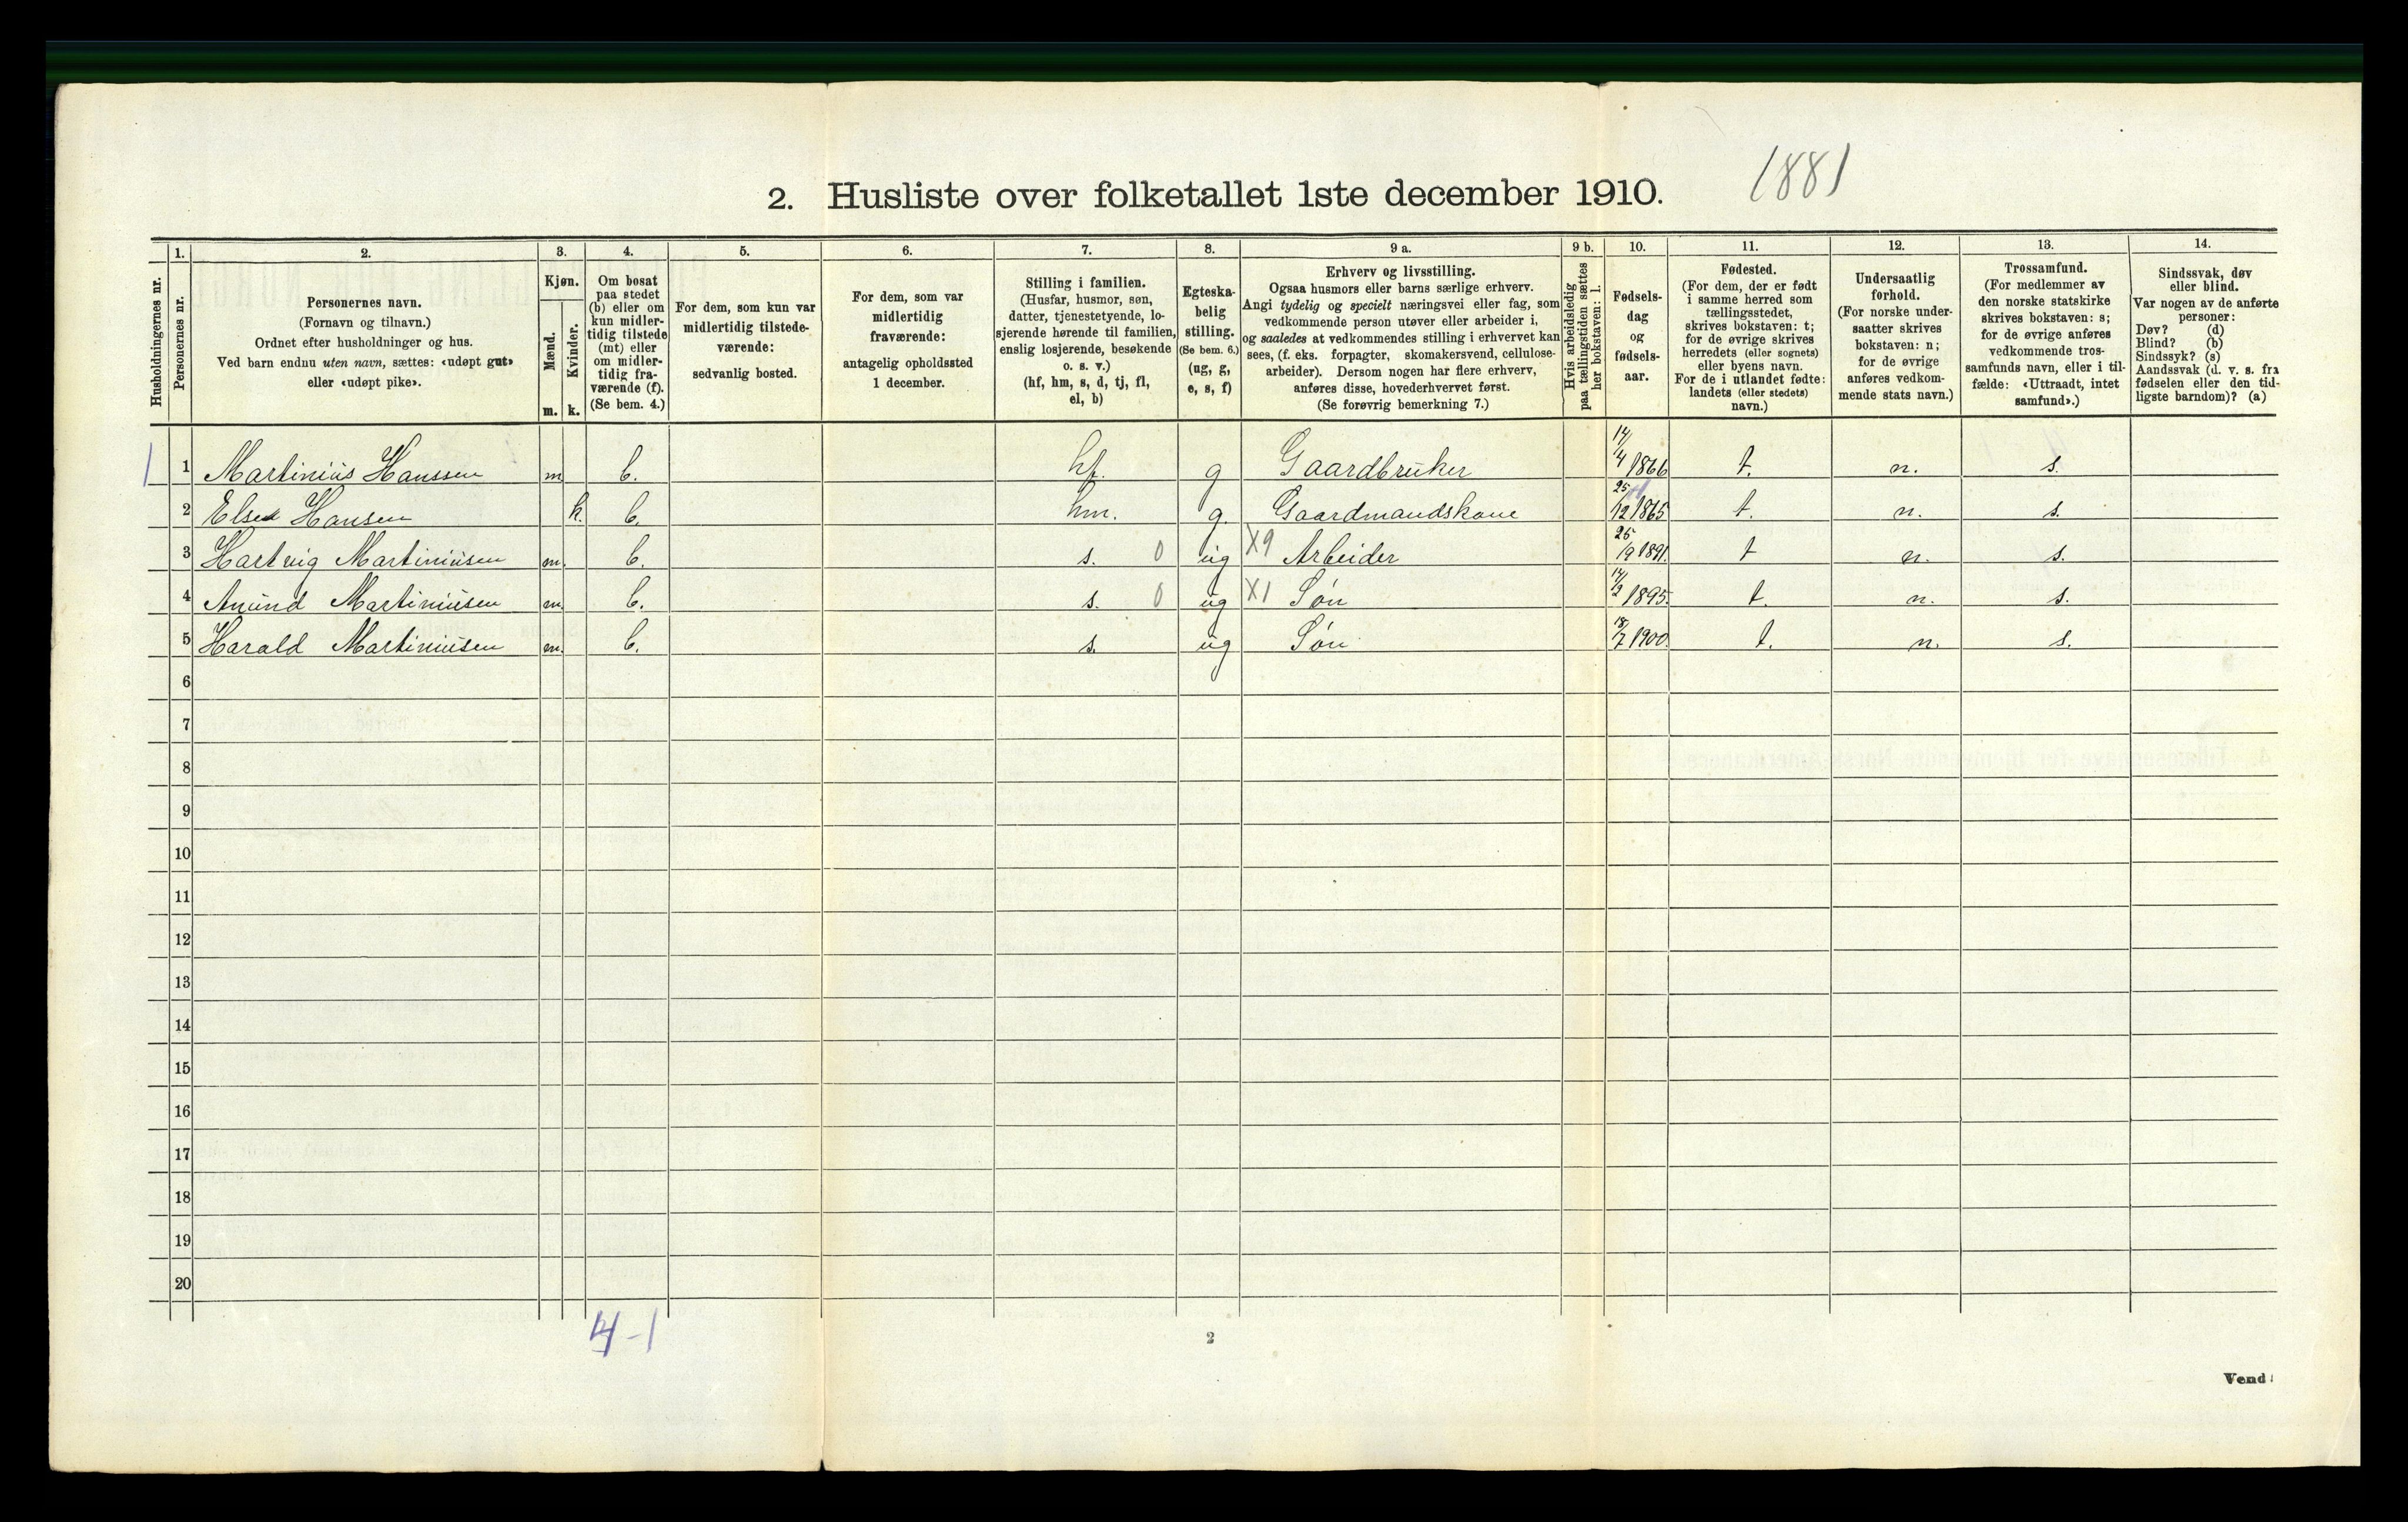 1881
2. Husliste over folketallet 1ste december 1910.
Husholdningernes nr.
1.
Personernes nr.
2.
Personernes navn.
(Fornavn og tilnavn.)
Ordnet efter husholdninger og hus.
Ved barn endnu uten navn, sættes: «udøpt gut»
eller «udøpt pike».
3.
Kjøn.
Mænd.
Kvinder.
m. k.
4.
Om bosat
paa stedet
(b) eller om
kun midler-
tidig tilstede
(mt) eller
om midler-
tidig fra-
værende (f).
(Se bem. 4.)
5.
For dem, som kun var
midlertidig tilstede-
værende:
sedvanlig bosted.
6.
For dem, som var
midlertidig
fraværende:
antagelig opholdssted
1 december.
7.
Stilling i familien.
(Husfar, husmor, søn,
datter, tjenestetyende, lo-
sjerende hørende til familien,
enslig losjerende, besøkende
o. s. v.)
(hf, hm, s, d, tj, fl,
el, b)
8.
Egteska-
belig
stilling.
(Se bem. 6.)
(ug, g,
e, s, f)
9 a.
Erhverv og livsstilling.
Ogsaa husmors eller barns særlige erhverv.
Angi tydelig og specielt næringsvei eller fag, som
vedkommende person utøver eller arbeider i,
og saaledes at vedkommendes stilling i erhvervet kan
sees, (f. eks. forpagter, skomakersvend, cellulose-
arbeider). Dersom nogen har flere erhverv,
anføres disse, hovederhvervet først.
(Se forøvrig bemerkning 7.)
9 b.
Hvis arbeidsledig
paa tællingstiden sættes
her bokstaven: l.
10.
Fødsels-
dag
og
fødsels-
aar.
11.
Fødested.
(For dem, der er født
i samme herred som
tællingsstedet,
skrives bokstaven: t;
for de øvrige skrives
herredets (eller sognets)
eller byens navn.
For de i utlandet fødte:
landets (eller stedets)
navn.)
12.
Undersaatlig
forhold.
(For norske under-
saatter skrives
bokstaven: n;
for de øvrige
anføres vedkom-
mende stats navn.)
13.
Trossamfund.
(For medlemmer av
den norske statskirke
skrives bokstaven: s;
for de øvrige anføres
vedkommende tros-
samfunds navn, eller i til-
fælde: «Uttraadt, intet
samfund».)
14.
Sindssvak, døv
eller blind.
Var nogen av de anførte
personer:
Døv? (d)
Blind? (b)
Sindssyk? (s)
Aandssvak (d. v. s. fra
fødselen eller den tid-
ligste barndom)? (a)
1 1 Martinius Hanssen m b. hf. g Gaardbruker 14/4 1866 t. n. s.
2 Else Hansen k. b. hm. g. Gaardmandskone 25/12 1865 t. n. s.
3 Hartvig Martiniusen m. b. s. 0 ug X9 Arbeider 25/9 1891. t n. s.
4 Anund Martiniusen m. b. s. 0 ug X1 Søn 14/2 1895. t. n. s.
5 Harald Martiniusen m. b. s. ug Søn 18/7 1900. t. n. s.
6
7
8
9
10
11
12
13
14
15
16
17
18
19
20
4-1
2
Vend!